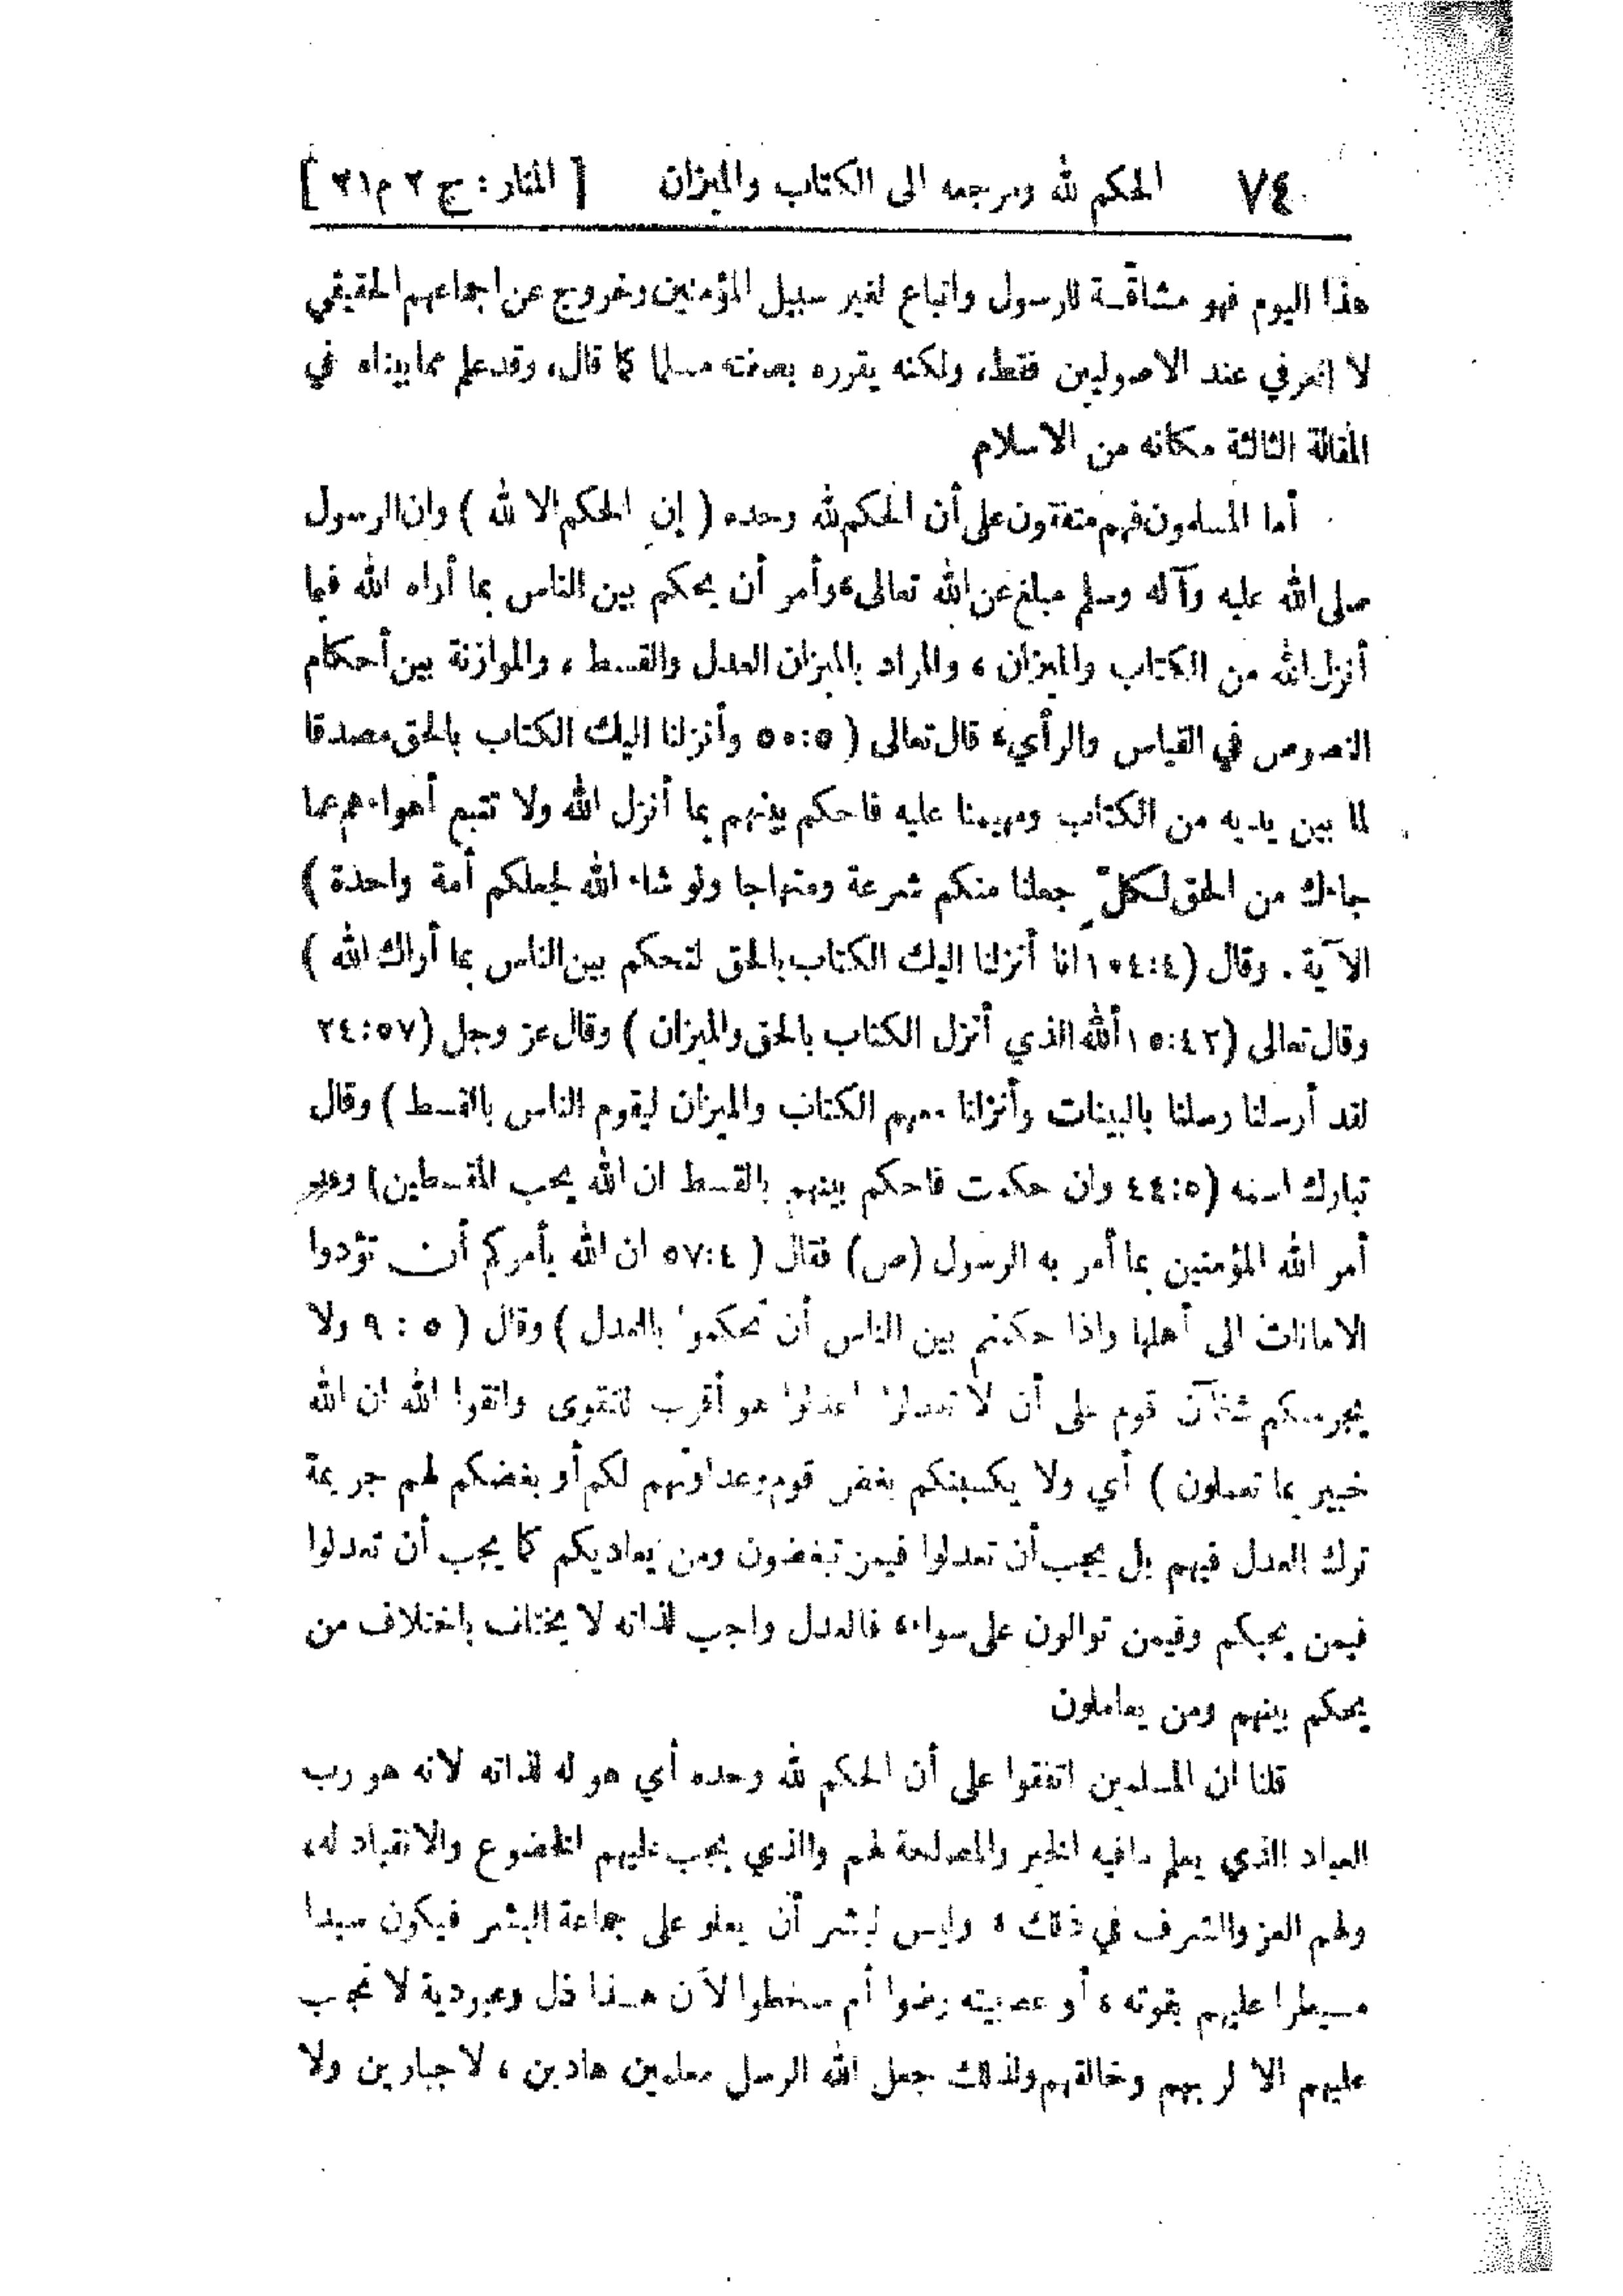 ٧٤ الحكم لله ومرجعه الى الكتاب والميزان [ المنار : ج ٢ م ٣١ ]
هذا اليوم فهو مشاقّة للرسول واتباع لغير سبيل المؤمنين وخروج عن اجماعهم الحقيقي
لا العرفي عند الاصوليين فقط، ولكنه يقرره بصفته مسلما كما قال، وقد علم مما بيناه في
المقالة الثالثة مكانه من الاسلام
أما المسلمون فهم متفقون على أن الحكم لله وحده ( إن الحكم الا لله ) وان الرسول
صلى الله عليه وآله وسلم مبلغ عن الله تعالى، وأمر أن يحكم بين الناس بما أراه الله فيما
أنزل الله من الكتاب والميزان ، والمراد بالميزان العدل والقسط ، والموازنة بين أحكام
النصوص في القياس والرأي، قال تعالى ( ٥:٥٠ وأنزلنا اليك الكتاب بالحق مصدقا
لما بين يديه من الكتاب ومهيمنا عليه فاحكم بينهم بما أنزل الله ولا تتبع أهواءهم عما
جاءك من الحق لكلٍّ جعلنا منكم شرعة ومنهاجا ولو شاء الله لجعلكم أمة واحدة )
الآية . وقال (٤:١٠٤ انا أنزلنا اليك الكتاب بالحق لتحكم بين الناس بما أراك الله )
وقال تعالى (٤٢:١٥ ألله الذي أنزل الكتاب بالحق والميزان ) وقال عز وجل (٥٧:٢٤
لقد أرسلنا رسلنا بالبينات وأنزلنا معهم الكتاب والميزان ليقوم الناس بالقسط ) وقال
تبارك اسمه (٥:٤٤ وان حكمت فاحكم بينهم بالقسط ان الله يحب المقسطين)
أمر الله المؤمنين بما أمر به الرسول (ص) فقال ( ٤:٥٧ ان الله يأمركم أن تؤدوا
الامانات الى أهلها واذا حكمتم بين الناس أن تحكموا بالعدل ) وقال ( ٥ : ٩ ولا
يجرمنكم شنآن قوم على أن لا تعدلوا اعدلوا هو أقرب للتقوى واتقوا الله ان الله
خبير بما تعملون ) أي ولا يكسبنكم بغض قوم وعداوتهم لكم أو بغضكم لهم جريمة
ترك العدل فيهم بل يجب أن تعدلوا فيمن تبغضون ومن يعاديكم كما يجب أن تعدلوا
فيمن يحبكم وفيمن توالون على سواء، فالعدل واجب لذاته لا يختلف باختلاف من
يحكم بينهم ومن يعاملون
قلنا ان المسلمين اتفقوا على أن الحكم لله وحده أي هو له لذاته لانه هو رب
العباد الذي يعلم ما فيه الخير والمصلحة لهم والذي يجب عليهم الخضوع والانقياد له،
ولهم العز والشرف في ذلك ، وليس لبشر أن يعلو على جماعة البشر فيكون سيدا
مسيطرا عليهم بقوته ، أو عصبيته رضوا أم سخطوا لأن هذا ذل وعبودية لا تجب
عليهم الا لربهم وخالقهم ولذلك جعل الله الرسل معلمين هادين ، لا جبارين ولا